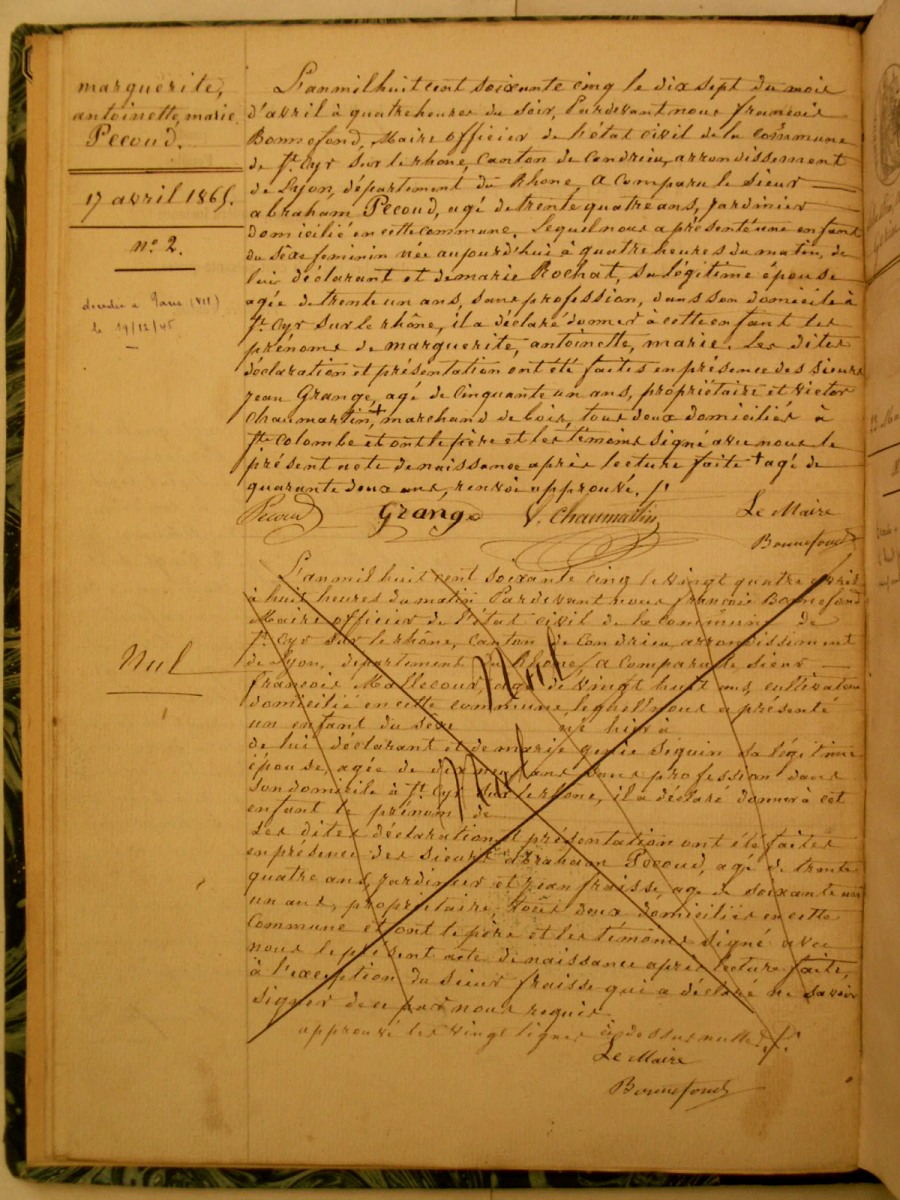 marguerite,
antoinette, marie
Pecoud.
17 avril 1865.
n.° 2.
decedee a Paris (VII)
le 19/12/45
L'an mil huit cent soixante cinq le dix sept du mois
d'avril à quatre heures du soir, Pardevant nous françois
Bonnefond, Maire officier de l'état civil de la commune
de St. Cyr sur le rhône, Canton de Condrieu, arrondissement
de Lyon, département du Rhône, a Comparu le sieur
abraham Pecoud, agé de trente quatre ans, Jardinier
domicilié en cette commune, lequel nous a présenté une enfant
du sexe feminin née aujourd'hui à quatre heures du matin, de
lui déclarant et de marie Rochat, sa légitime épouse
agée de trente un ans, sans profession, dans son domicile à
St. Cyr sur le rhône, il a déclaré donner à cette enfant les
prénoms de marguerite, antoinette, marie. Les dites
déclaration et présentation ont été faites en présence des sieurs
Jean Grange, agé de Cinquante un ans, propriétaire et Victor
Chaumartin, + marchand de bois, tous deux domiciliés à
Ste Colombe et ont le père et les témoins signé avec nous le
présent acte de naissance après lecture faite + agé de
quarante deux ans, renvoi approuvé.
Pecoud Grange V. Chaumartin Le Maire
Bonnefond
L'an mil huit cent soixante cinq le vingt quatre avril
à huit heures du matin Pardevant nous françois Bonnefond
Maire officier de l'état civil de la commune de
St. Cyr sur le rhône, canton de Condrieu, arrondissement
de Lyon, département du Rhône, a Comparu le sieur
françois Mallecour, agé de vingt huit ans, cultivateur
domicilié en cette commune, lequel nous a présenté
un enfant du sexe né hier à
de lui déclarant et de marie Seguin sa légitime
épouse, agée de dix neuf ans sans profession dans
son domicile à St. Cyr sur le rhône, il a déclaré donner à cet
enfant le prénom de
Les dites déclaration et présentation ont été faites
en présence des sieurs abraham Pecoud, agé de trente
quatre ans, Jardinier et Jean fraisse, agé de soixante
un ans, propriétaire, tous deux domiciliés en cette
Commune et ont le père et les témoins signé avec
nous le présent acte de naissance après lecture faite,
à l'exception du sieur fraisse qui a déclaré ne savoir
signer de ce par nous requis
Nul
Nul
Nul
approuvé les vingt lignes ci dessus nulles
Le Maire
Bonnefond